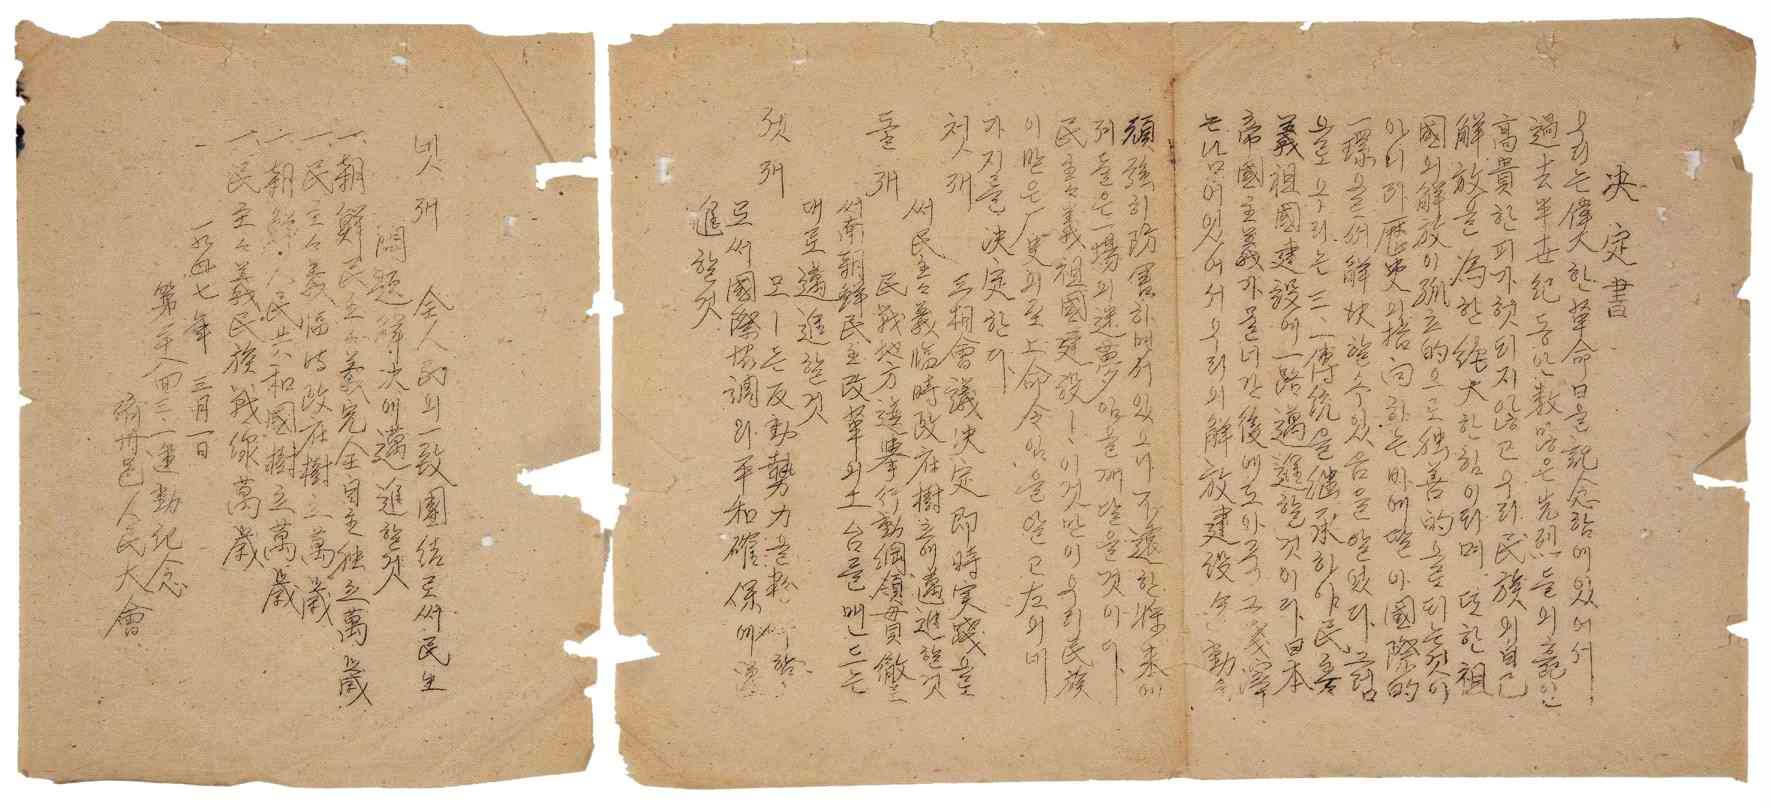 決定書
우리는 偉大한 革命日을 記念함에 있어서
過去 半世紀 동안 數많은 先烈들의 흘인
高貴한 피가 헛되지 않고 우리 民族의 自己
解放을 爲한 絶大한 힘이되며 또한 祖
國의 解放이 孤立的으로 独善的을 되는것이
아이라 歷史의 指向하는바에 딸아 國際的
一環을 解決할수있음을 알았다 그럼
으로 우리는 三、一傳統을 継承하야 民主
義祖國建設에 一路邁進할것이다 日本
帝國主義가 물너간 後에도 아즉 그 殘滓
는 남어있어서 우리의 解放 建設 을
頑强히 防害하며서 있으나 不遠한 將來에
저들은 一場의 迷夢임을 깨달을것이다
民主主義祖國建設! 이것만이 우리 民族
이 만은 歷史의 至上命令임을 알고 左의 네
가지를 決定한다
첫재 三相會議決定 即時実踐으로
써 民主主義臨時政府樹立에 邁進할것
둘재 民戰地方選擧行動綱領 貫徹로
써 南朝鮮民主改革의 土台를 맨드는
대로 邁進할것
셋재 모ー든 反動勢力을 粉 할
모써 國際協調와 平和確保에 邁
進할것
넷재 全人民의 一致團結로써 民生
問題解決에 邁進할것
一、朝鮮民主主義完全自主独立萬歲
一、民主主義臨時政府樹立萬歲
一、朝鮮人民共和國樹立萬歲
一、民主主義民族戰線萬歲
一九四七年 三月一日
第二八回三、一運動記念
濟州邑人民大會